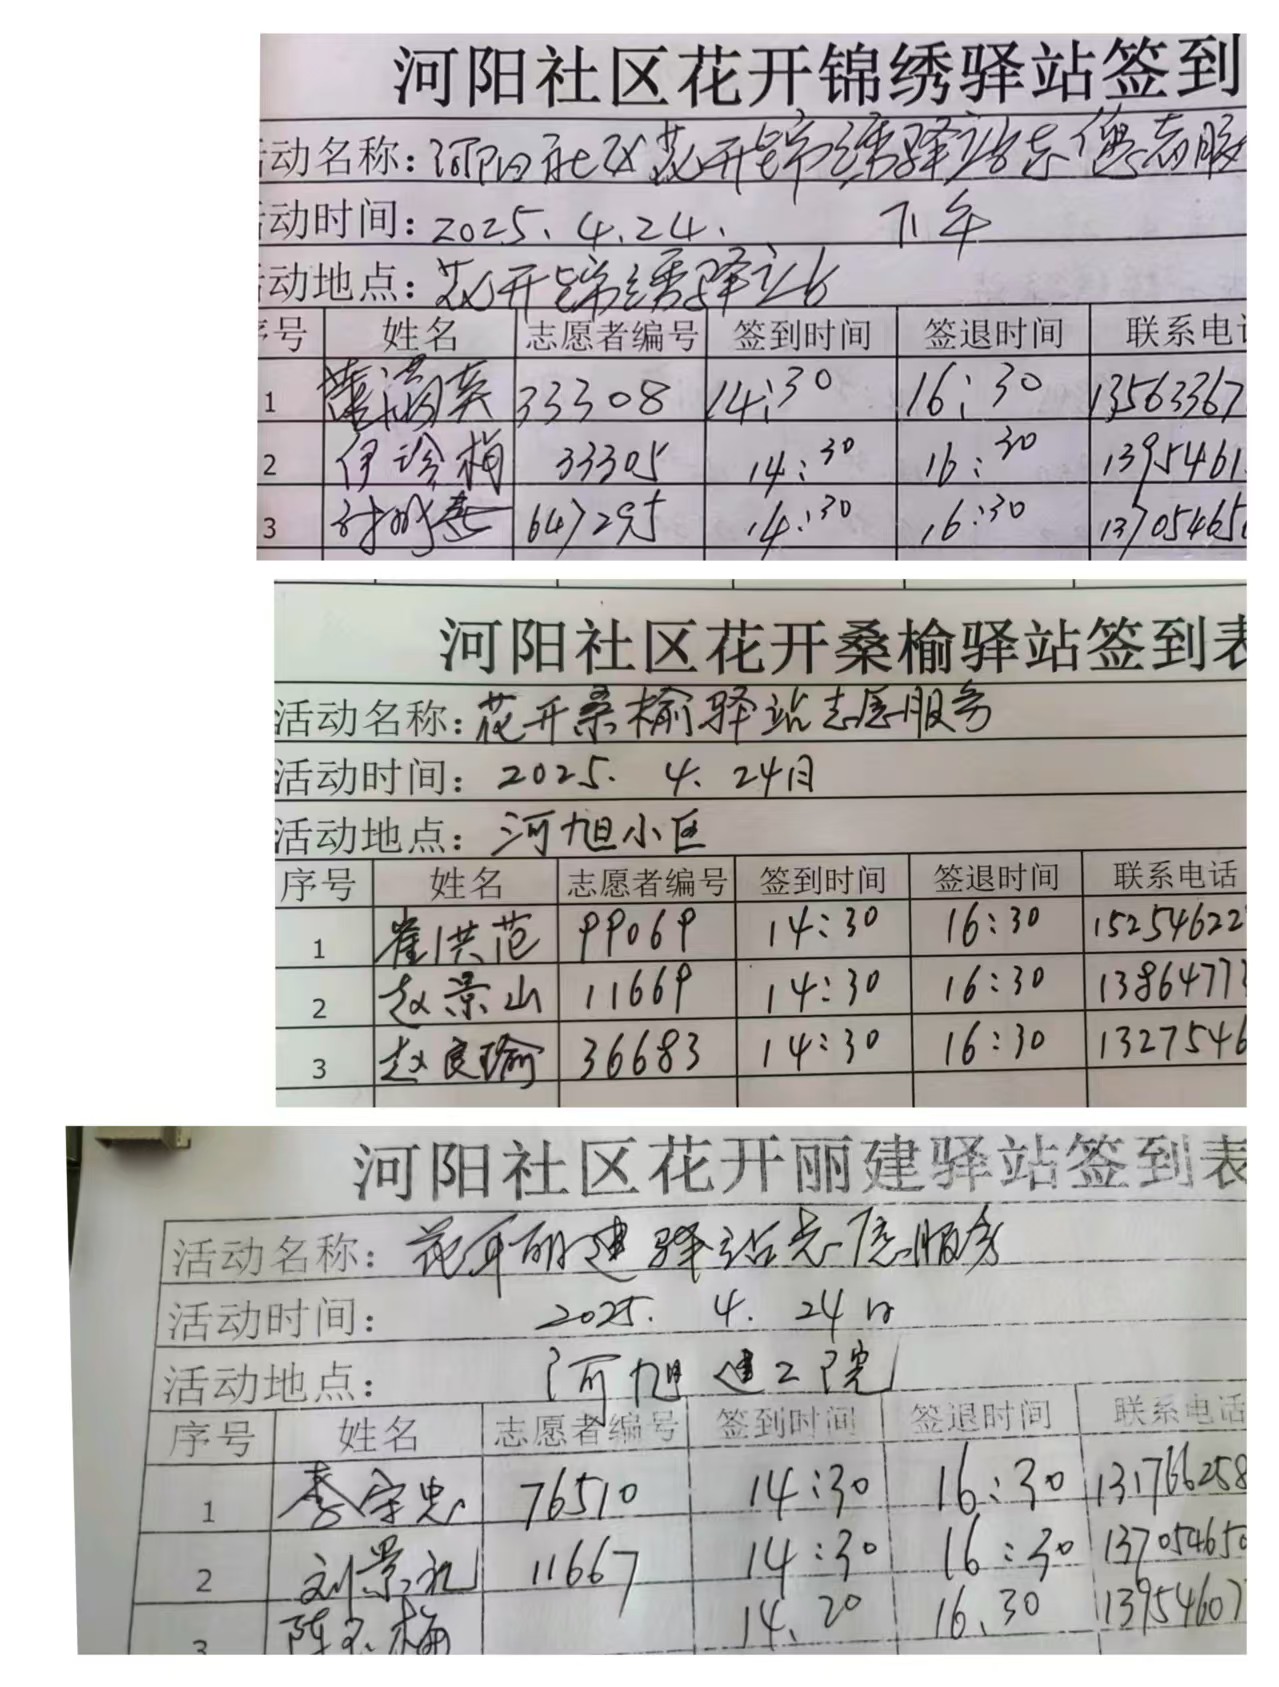 河阳社区花开锦绣驿站签到
活动名称：河阳社区花开锦绣驿站志愿者服
活动时间：2025.4.24. 下午
活动地点：花开锦绣驿站
序号 姓名 志愿者编号 签到时间 签退时间 联系电话
1 33308 14:30 16:30 13563367
2 伊珍梅 33305 14:30 16:30 1395461
3 647295 14:30 16:30 13705465
河阳社区花开桑榆驿站签到表
活动名称：花开桑榆驿站志愿服务
活动时间：2025. 4. 24日
活动地点：河旭小区
序号 姓名 志愿者编号 签到时间 签退时间 联系电话
1 崔洪范 99069 14:30 16:30 15254622
2 赵景山 11669 14:30 16:30 1386477
3 赵良瑜 36683 14:30 16:30 1327546
河阳社区花开丽建驿站签到表
活动名称：花开丽建驿站志愿服务
活动时间： 2025. 4. 24日
活动地点： 河旭建工院
序号 姓名 志愿者编号 签到时间 签退时间 联系电话
1 李守忠 76510 14:30 16:30 131766258
2 刘景礼 11667 14:30 16:30 13705465
3 陈玉梅 14.20 16.30 13954607